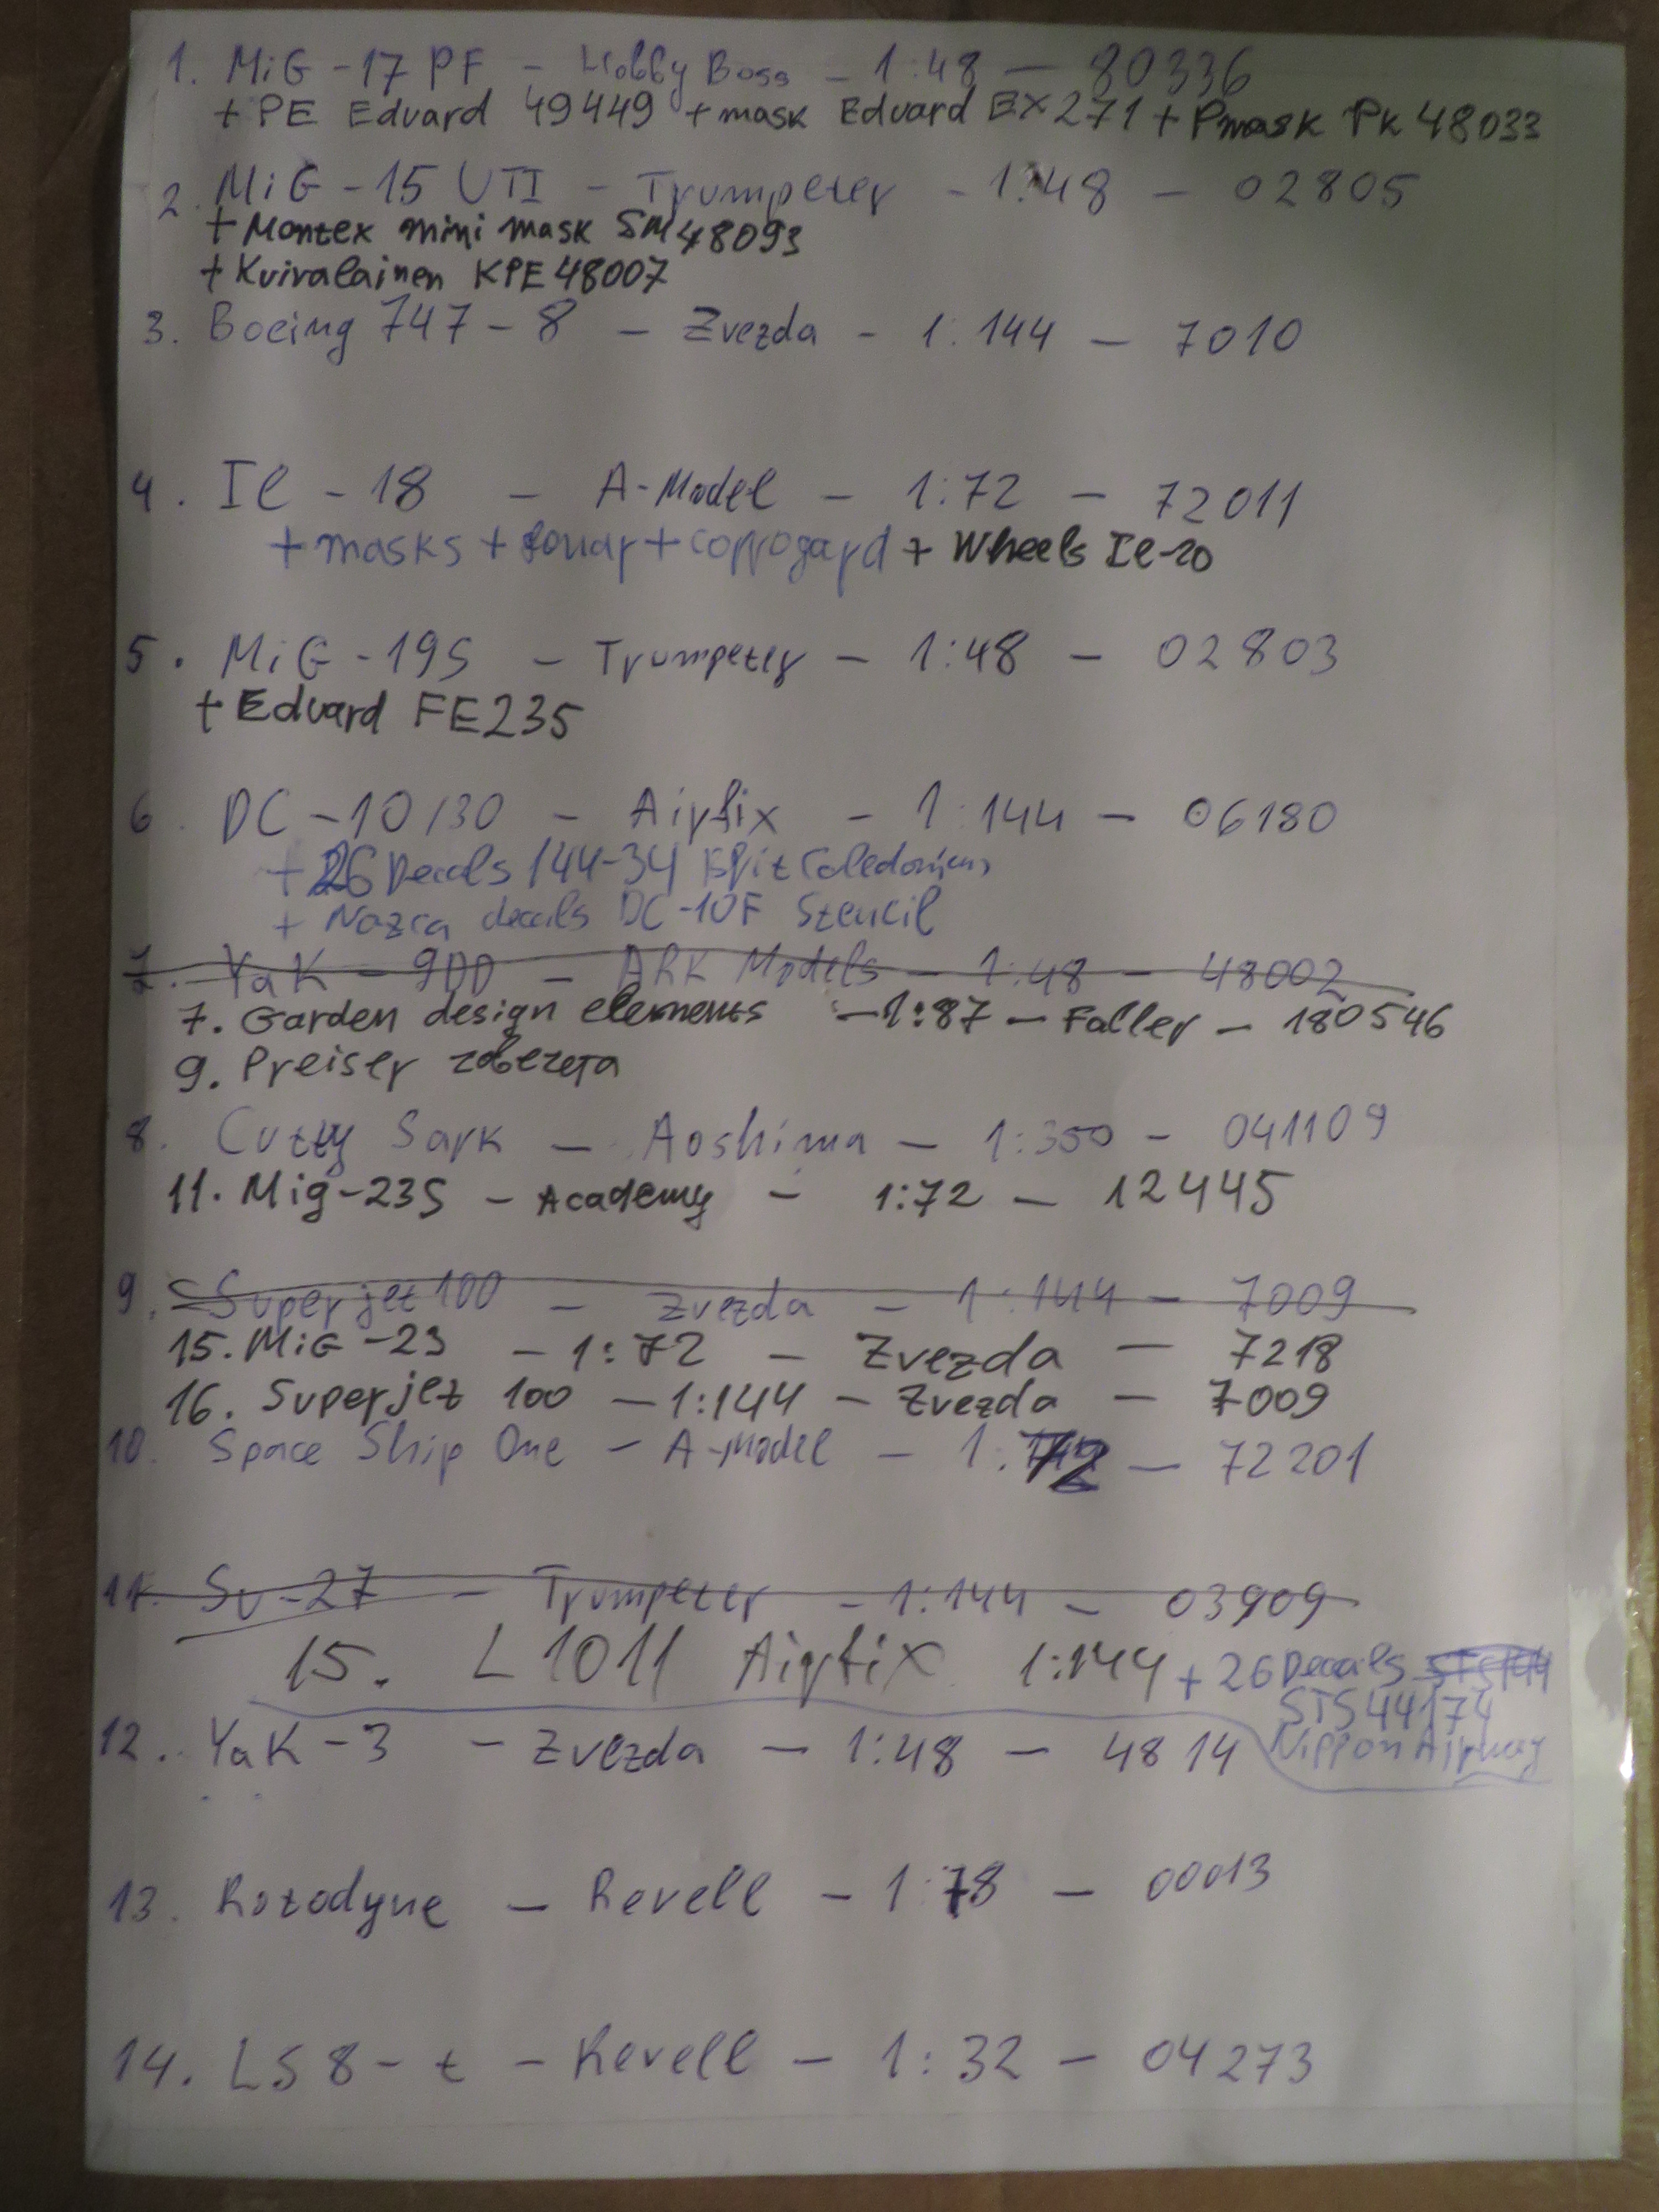 1. MiG - 17 PF - Hobby Boss - 1:48 - 80336
+ PE Eduard 49449 + mask Eduard EX271 + Pmask Pk 48033
2. MiG - 15 UTI - Trumpeter - 1:48 - 02805
+ Montex mini mask SM48093
+ Kuivalainen KPE48007
3. Boeing 747 - 8 - Zvezda - 1:144 - 7010
4. Il - 18 - A-Model - 1:72 - 72011
+ masks + + + Wheels Il-20
5. MiG - 19S - Trumpeter - 1:48 - 02803
+ Eduard FE235
6. DC - 10/30 - Airfix - 1:144 - 06180
+ 26 Decals 144-34 Caledonian
+ Nazca decals DC-10F Stencil
7. Yak - 9DD - ARK Models - 1:48 - 48002
7. Garden design elements - 1:87 - Faller - 180546
9. Preiser
8. Cutty Sark - Aoshima - 1:350 - 041109
11. Mig-23S - Academy - 1:72 - 12445
9. Superjet 100 - Zvezda - 1:144 - 7009
15. MiG-23 - 1:72 - Zvezda - 7218
16. Superjet 100 - 1:144 - Zvezda - 7009
10. Space Ship One - A-Model - 1:72 - 72201
11. Su-27 - Trumpeter - 1:144 - 03909
15. L1011 Airfix 1:144 + 26 Decals
STS44174
Nippon Airway
12. Yak - 3 - Zvezda - 1:48 - 4814
13. Rotodyne - Revell - 1:78 - 00013
14. LS 8 - t - Revell - 1:32 - 04273